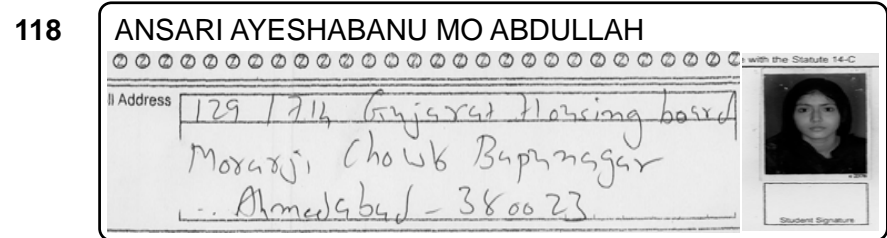 118 ANSARI AYESHABANU MO ABDULLAH
with the Statute 14-C
ll Address
129 / 714 Gujarat Housing board
Morarji Chowk Bapunagar
Ahmedabad - 380023
Student Signature